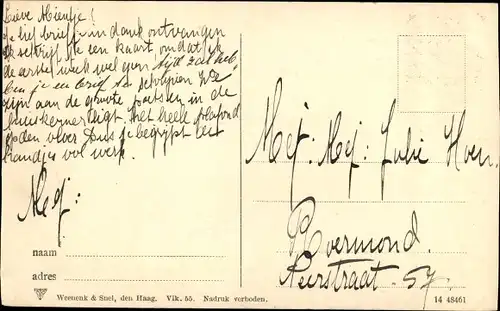 Lieve Mientje!
Je lief briefje in dank ontvangen
Ik schrijf je een kaart, omdat ik
de eerste week wel geen tijd zal heb-
ben je een brief te schrijven We
zijn aan de groote in de
ligt het heele plafond
op den vloer Dus je begrijpt een
handje vol werk.
Mej:
Mej: Mej: Julie Hoen.
Roermond.
Neerstraat. 57.
naam
adres
Weenenk & Snel, den Haag. Vik. 55. Nadruk verboden.
14 48461